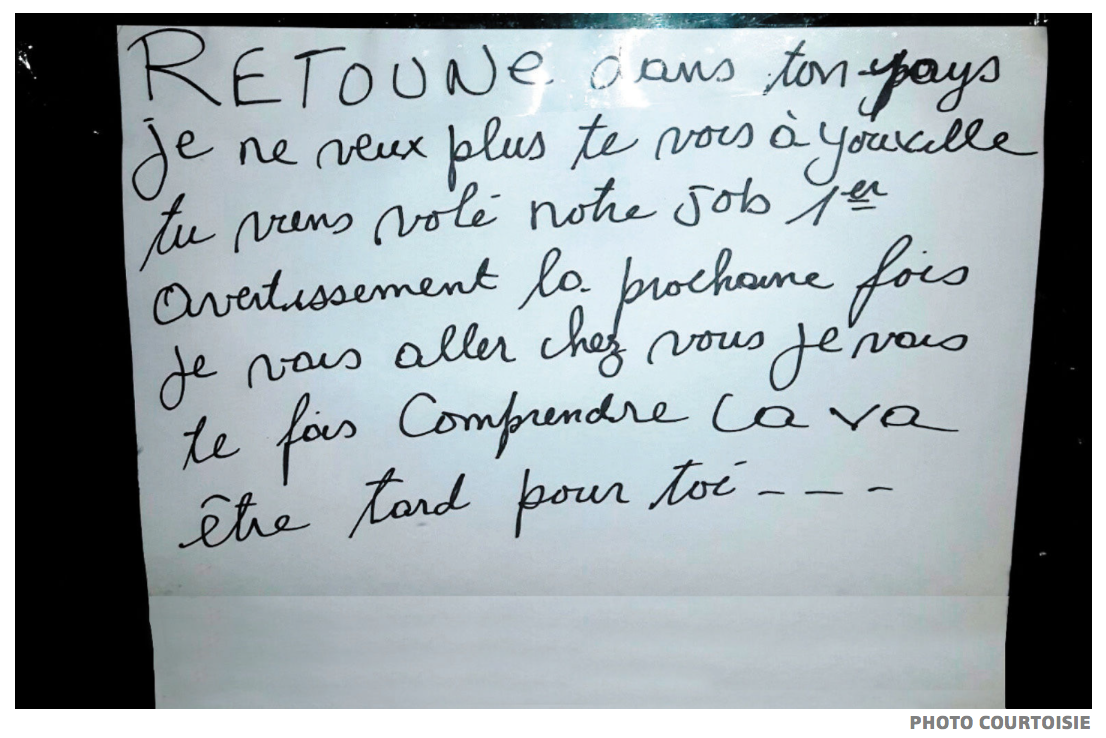 RETOUNe dans ton pays
je ne veux plus te vois à youville
tu viens volé notre job 1er
avertissement la prochaine fois
je vais aller chez vous je vais
te fais Comprendre Ca va
être tard pour toi - - -
PHOTO COURTOISIE